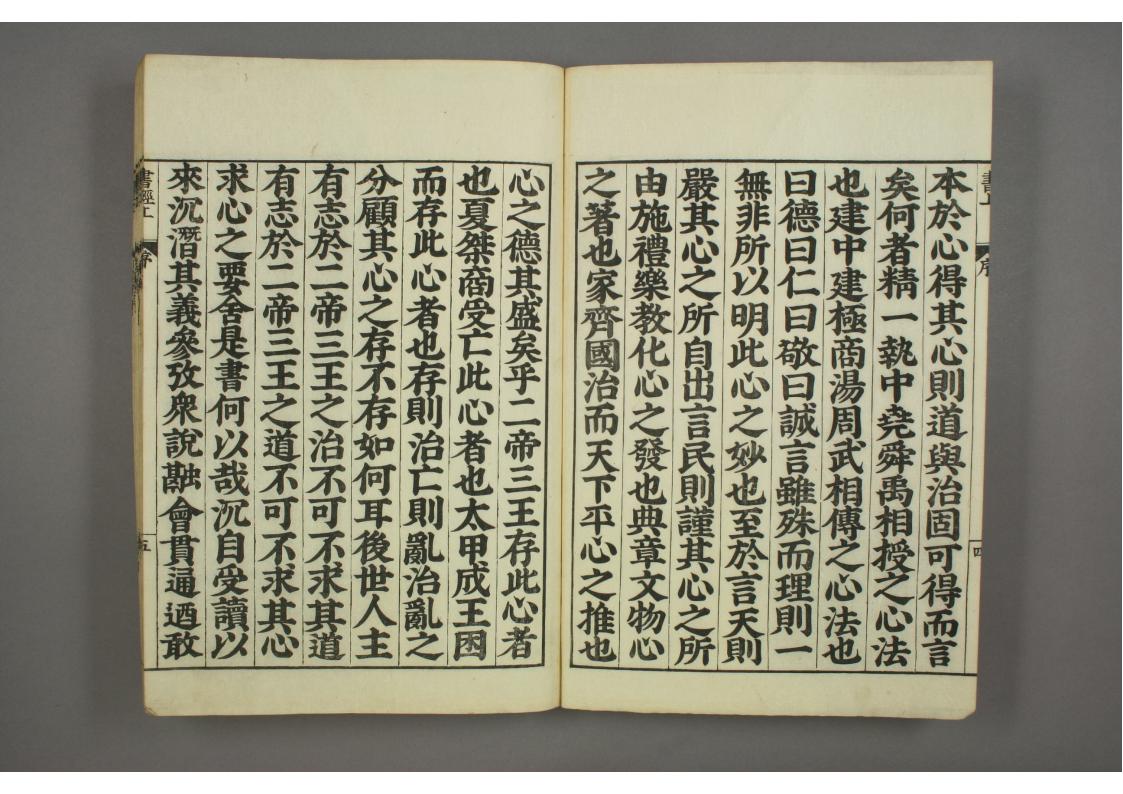 本於心得其心則道與治固可得而言
矣何者精一執中堯舜禹相授之心法
也建中建極商湯周武相傳之心法也
曰德曰仁曰敬曰誠言雖殊而理則一
無非所以明此心之妙也至於言天則
嚴其心之所自出言民則謹其心之所
由施禮樂教化心之發也典章文物心
之著也家齊國治而天下平心之推也
心之德其盛矣乎二帝三王存此心者
也夏桀商受亡此心者也太甲成王困
而存此心者也存則治亡則亂治亂之
分顧其心之存不存如何耳後世人主
有志於二帝三王之治不可不求其道
有志於二帝三王之道不可不求其心
求心之要舍是書何以哉沉自受讀以
來沉潛其義參攷衆說融會貫通迺敢
書經上
序
五
序
四